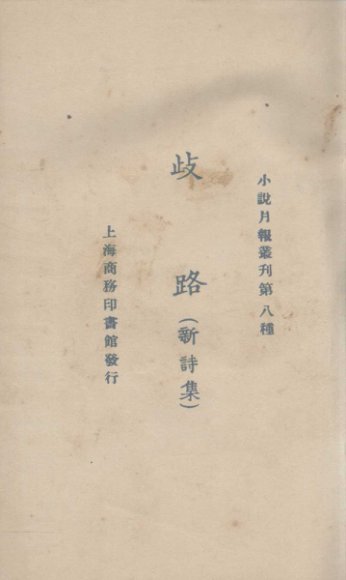 小說月報叢刊第八種
歧路(新詩集)
上海商務印書館發行